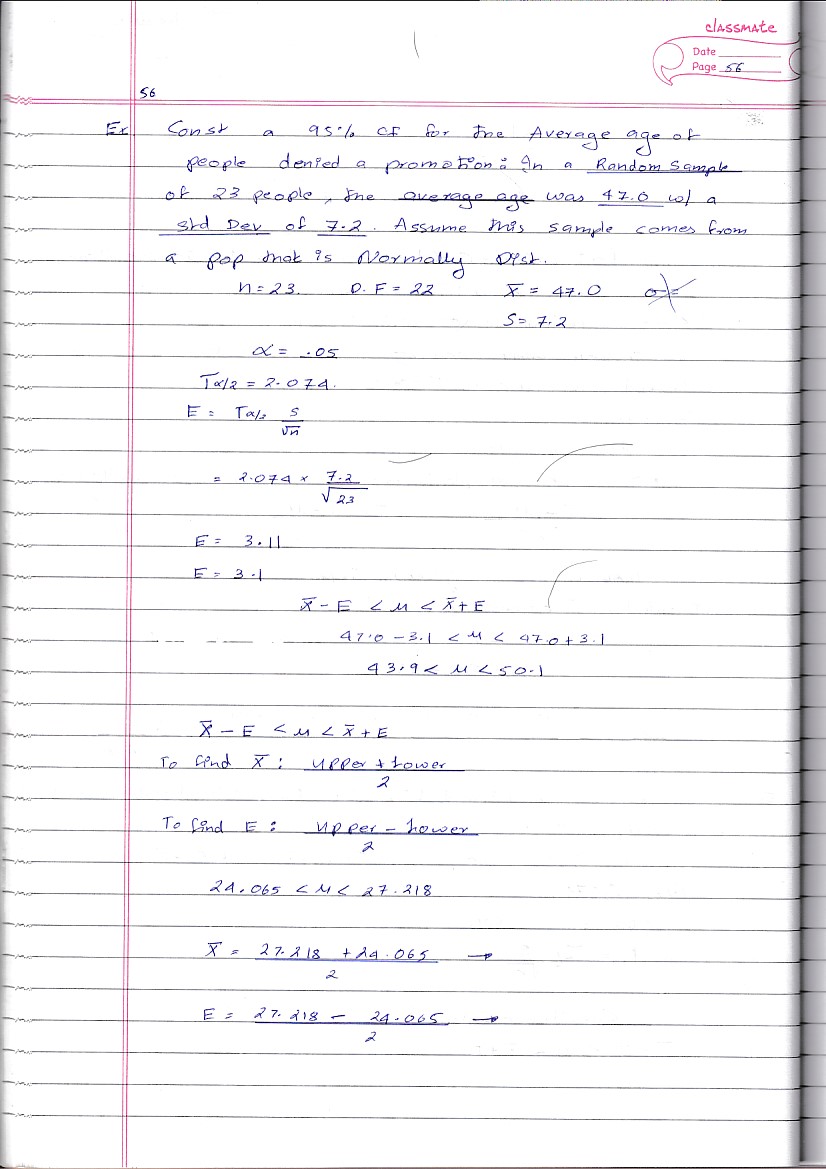 classmate
Date
Page 56
56
Ex Const a 95% CI for the Average age of
people denied a promotion: In a Random Sample
of 23 people, the average age was 47.0 w/ a
std Dev of 7.2. Assume this sample comes from
a pop that is Normally Dist.
n = 23. D.F = 22 x̄ = 47.0 σ=
S = 7.2
α = .05
Tα/2 = 2.074.
E = Tα/2 S/√n
= 2.074 × 7.2/√23
E = 3.11
E = 3.1
x̄ - E < μ < x̄ + E
47.0 - 3.1 < μ < 47.0 + 3.1
43.9 < μ < 50.1
x̄ - E < μ < x̄ + E
To find x̄ : upper + Lower / 2
To find E : upper - Lower / 2
24.065 < μ < 27.218
x̄ = 27.218 + 24.065 / 2 →
E = 27.218 - 24.065 / 2 →